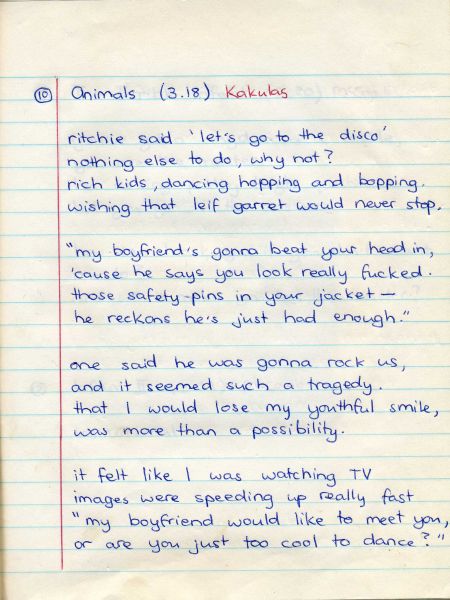 10 Animals (3.18) Kakulas
ritchie said 'let's go to the disco'
nothing else to do, why not?
rich kids, dancing hopping and bopping.
wishing that leif garret would never stop.
"my boyfriend's gonna beat your head in,
'cause he says you look really fucked.
those safety-pins in your jacket —
he reckons he's just had enough."
one said he was gonna rock us,
and it seemed such a tragedy.
that I would lose my youthful smile,
was more than a possibility.
it felt like I was watching TV
images were speeding up really fast
"my boyfriend would like to meet you,
or are you just too cool to dance?"